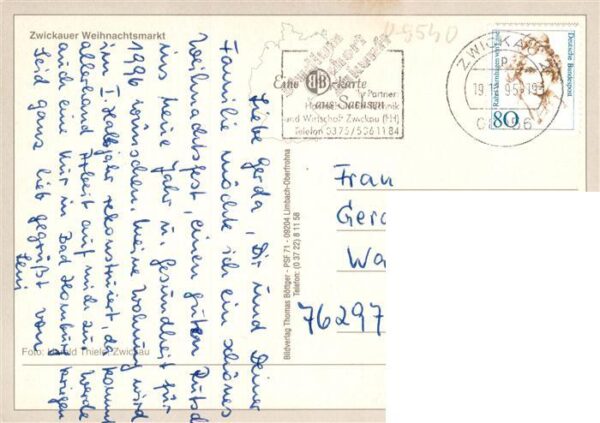 Zwickauer Weihnachtsmarkt
Liebe Gerda, Dir und Deiner
Familie möchte ich ein schönes
Weihnachtsfest, einen guten Rutsch
ins neue Jahr u. Gesundheit für
1996 wünschen. Meine Wohnung wird
im I. Halbjahr rekonstruiert, da kommt
allerhand Arbeit auf mich zu. Werde
auch eine Kur in Bad Homburg kriegen
Seid ganz lieb gegrüßt von
Leni
Foto: Harald Thiele, Zwickau
Bildverlag Thomas Böttger - PSF 71 - 09204 Limbach-Oberfrohna
Telefon: (0 37 22) 8 11 58
Eine BB-Karte
aus Sachsen
Partner
und Wirtschaft Zwickau (FH)
Telefon 0375/536 11 84
ZWICKAU
19.1
95-19
Deutsche Bundespost
80
Frau
Gerd
Wa
76297